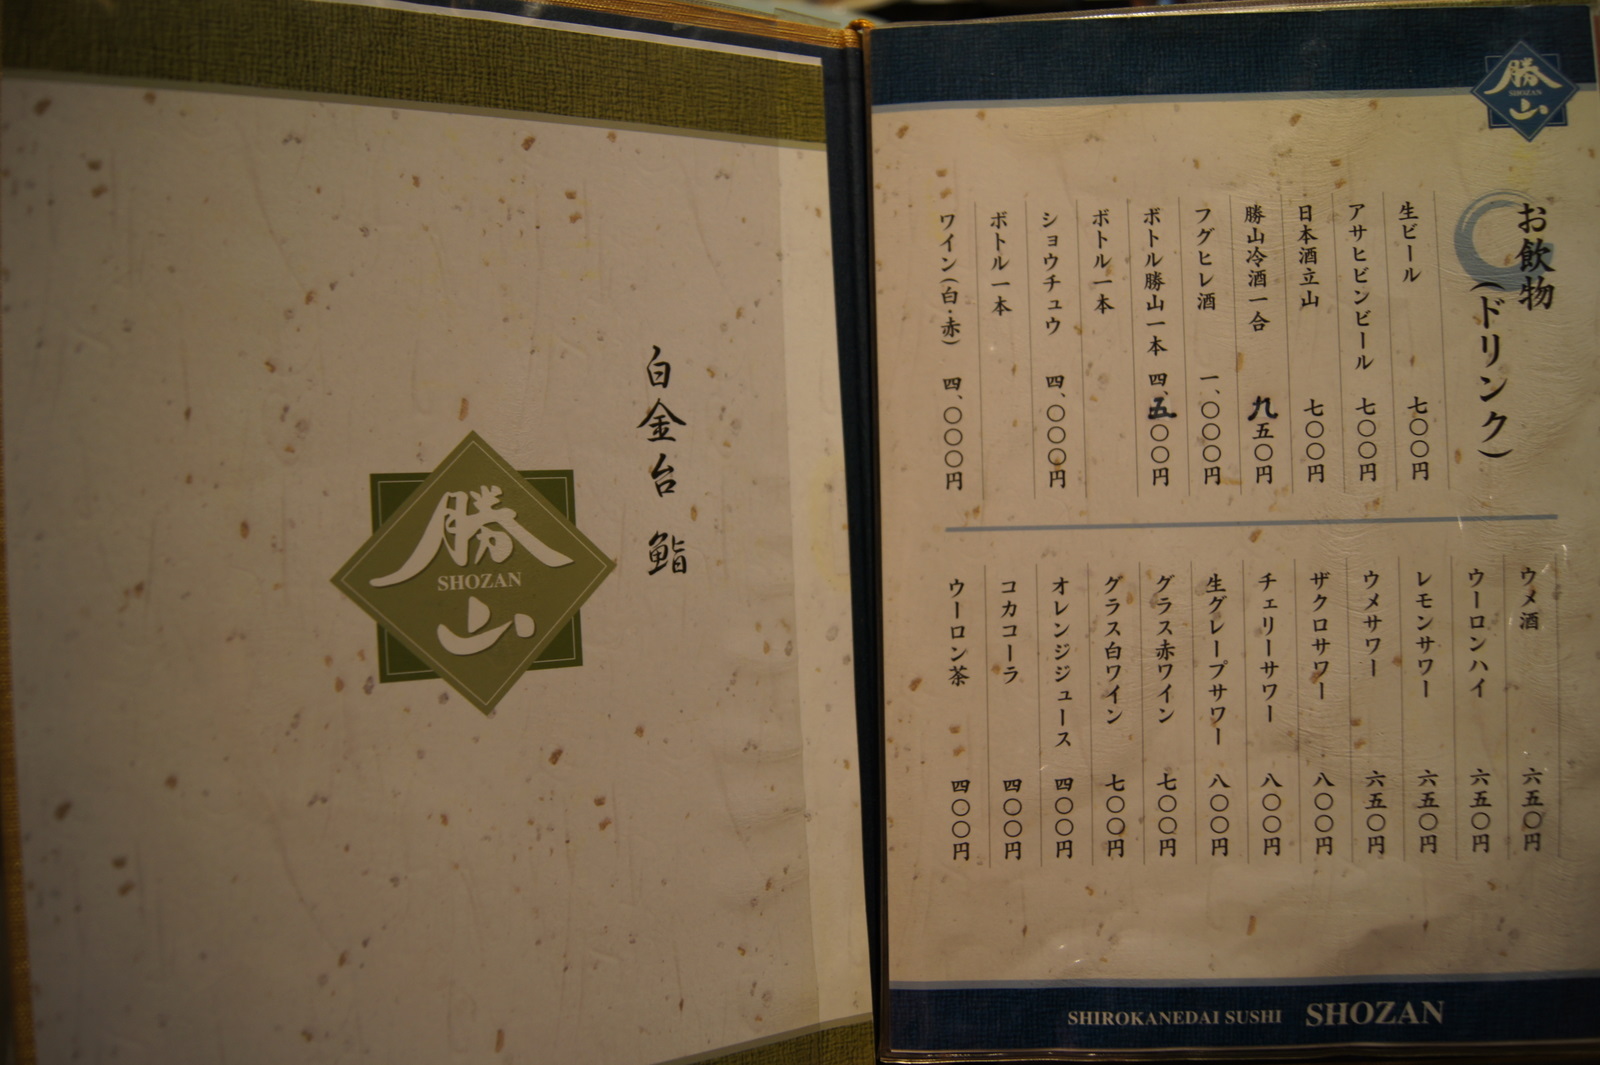 白金台 鮨
勝
SHOZAN
山
勝
SHOZAN
山
お飲物
(ドリンク)
生ビール 七〇〇円
アサヒビンビール 七〇〇円
日本酒立山 七〇〇円
勝山冷酒一合 九五〇円
フグヒレ酒 一、〇〇〇円
ボトル勝山一本 四、五〇〇円
ボトル一本
ショウチュウ 四、〇〇〇円
ボトル一本
ワイン(白・赤) 四、〇〇〇円
ウメ酒 六五〇円
ウーロンハイ 六五〇円
レモンサワー 六五〇円
ウメサワー 六五〇円
ザクロサワー 八〇〇円
チェリーサワー 八〇〇円
生グレープサワー 八〇〇円
グラス赤ワイン 七〇〇円
グラス白ワイン 七〇〇円
オレンジジュース 四〇〇円
コカコーラ 四〇〇円
ウーロン茶 四〇〇円
SHIROKANEDAI SUSHI SHOZAN